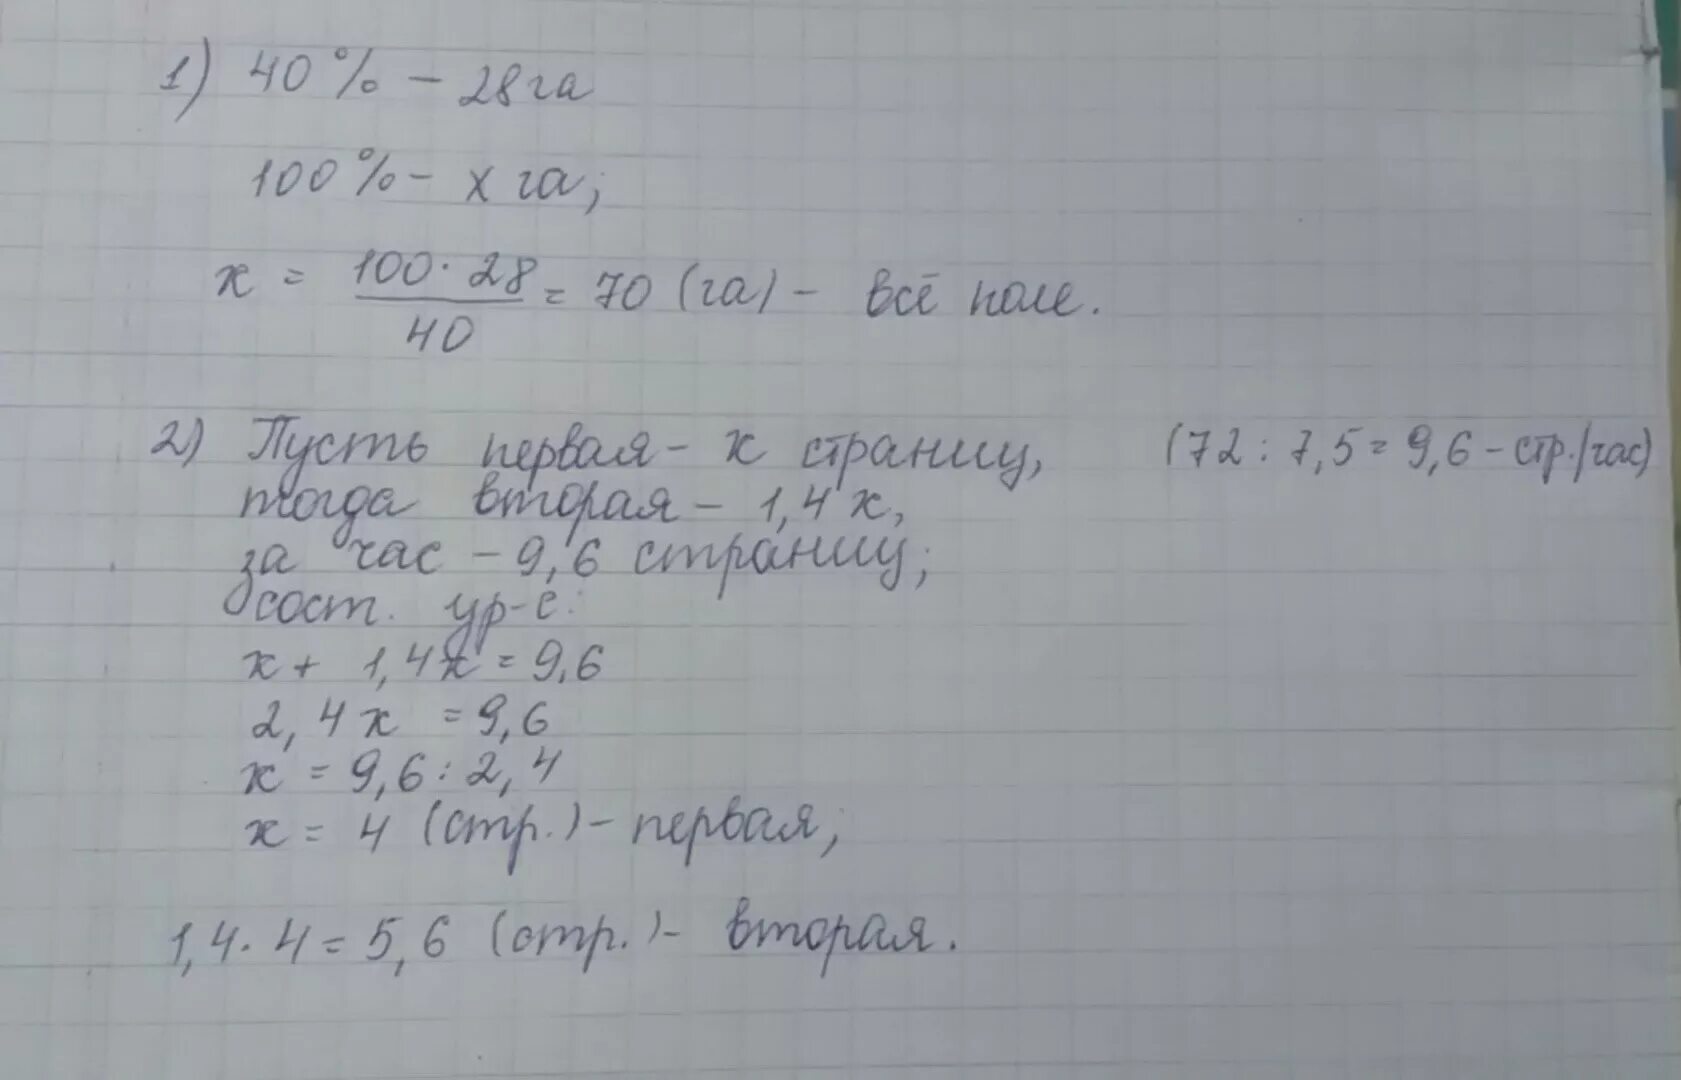 1) 40% – 28га
100% – х га;
х = 100 · 28 / 40 = 70 (га) – всё поле.
2) Пусть первая – х страниц, (72 : 7,5 = 9,6 – стр./час)
тогда вторая – 1,4х,
за час – 9,6 страниц;
сост. ур-е:
х + 1,4х = 9,6
2,4х = 9,6
х = 9,6 : 2,4
х = 4 (стр.) – первая;
1,4 · 4 = 5,6 (стр.) – вторая.